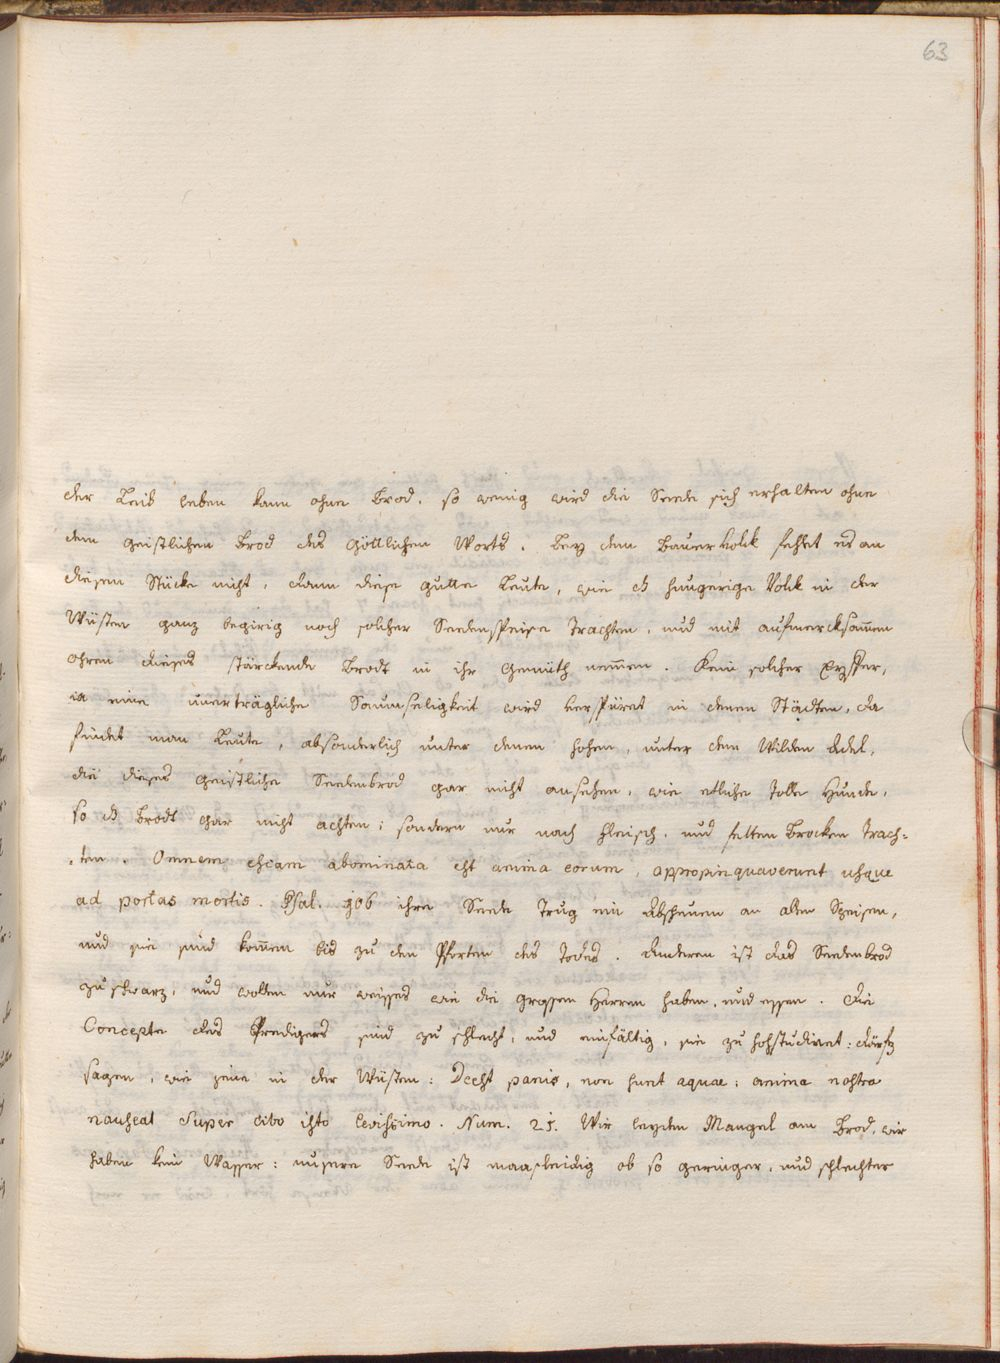 63
der Leib leben kann ohne Brod, so wenig wird die Seele sich erhalten ohne
dem geistlichen Brod des Göttlichen Worts. Bey dem Bauervolk fehlet es an
diesem Stücke nicht, dann diese gutte Leute, wie das hungerige Volk in der
Wüsten ganz begirig nach solcher Seelenspeise trachten, und mit aufmercksam̅en
ohren dieses stärckende Brodt in ihr Gemüth nem̅en. Kein solcher Eyffer,
ia eine unerträgliche Saumseligkeit wird verspüret in denen Städten, da
findet man Leute, absonderlich unter denen hohen, unter dem Wilden Adel,
die dieses geistliche Seelenbrod gar nicht ansehen, wie etliche tolle Hunde,
so das Brodt gar nicht achten; sondern nur nach fleisch, und fetten Brocken trach=
=ten. Omnem escam abominata est anima eorum, appropinquaverunt usque
ad portas mortis. Psal. 106 ihre Seele trug ein Abscheuen an allen Speisen,
und sie sind kom̅en bis zu den Pforten des Todes. Anderen ist das Seelenbrod
zu schwarz, und wollen nur weisses wie die grossen Herren haben, und essen. Die
Concepte des Predigers sind zu schlecht, und einfältig, sie zu hochstudiret:
sagen, wie jene in der Wüsten: Deest panis, non sunt aquae: anima nostra
nauseat super cibo isto levissimo. Num. 21. Wir leyden Mangel am Brod, wir
haben kein Wasser: unsere Seele ist maasleidig ob so geringer, und schlechter